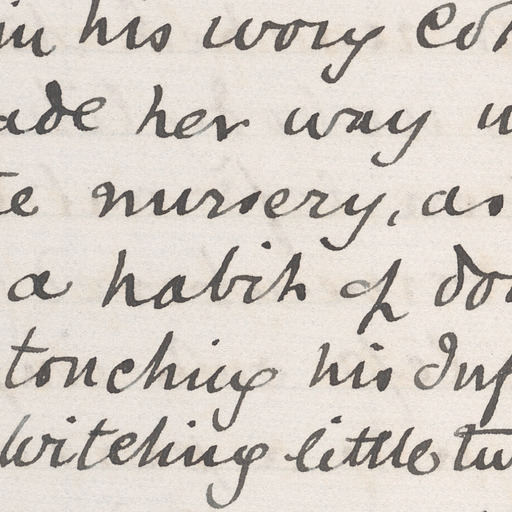 in his wory co
ade her way u
te nursery, as
a habit of do
touching his Inf
witching little tw